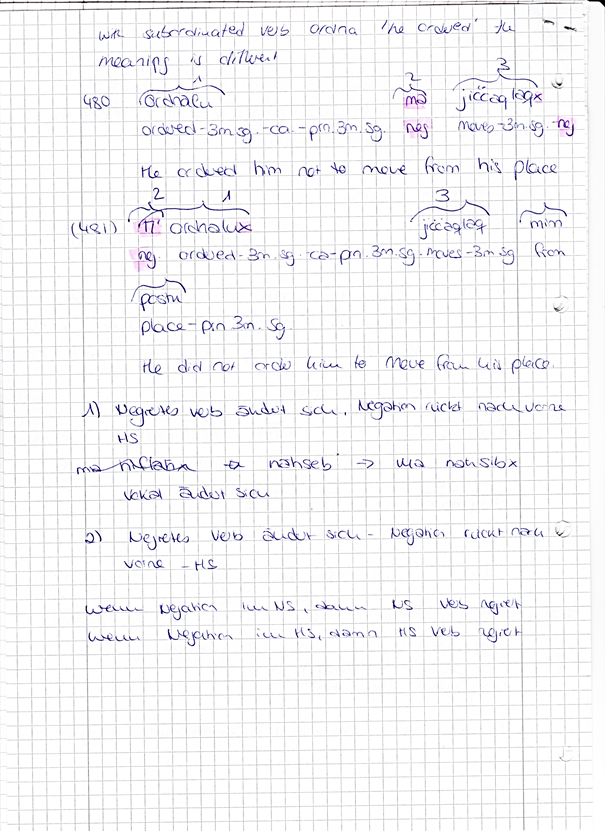 with subordinated verb ordna 'he ordered' the
meaning is different
1 2 3
480 Ordnalu ma jiċċaqlaqx
ordered-3m.sg.-ca-prn.3m.sg. neg moves-3m.sg.-neg
He ordered him not to move from his place
2 1 3
(481) m' ordnalux jiċċaqlaq minn
neg. ordered-3m.sg.-ca-prn.3m.sg. moves-3m.sg from
postu
place-prn 3m.sg.
He did not order him to move from his place.
1) Negiertes verb ändert sich, Negation rückt nach vorne
HS
nahseb → ma nahsibx
Vokal ändert sich
2) Negiertes Verb ändert sich - Negation rückt nach
vorne - HS
wenn Negation im NS, dann NS verb negiert
wenn Negation im HS, dann HS verb negiert